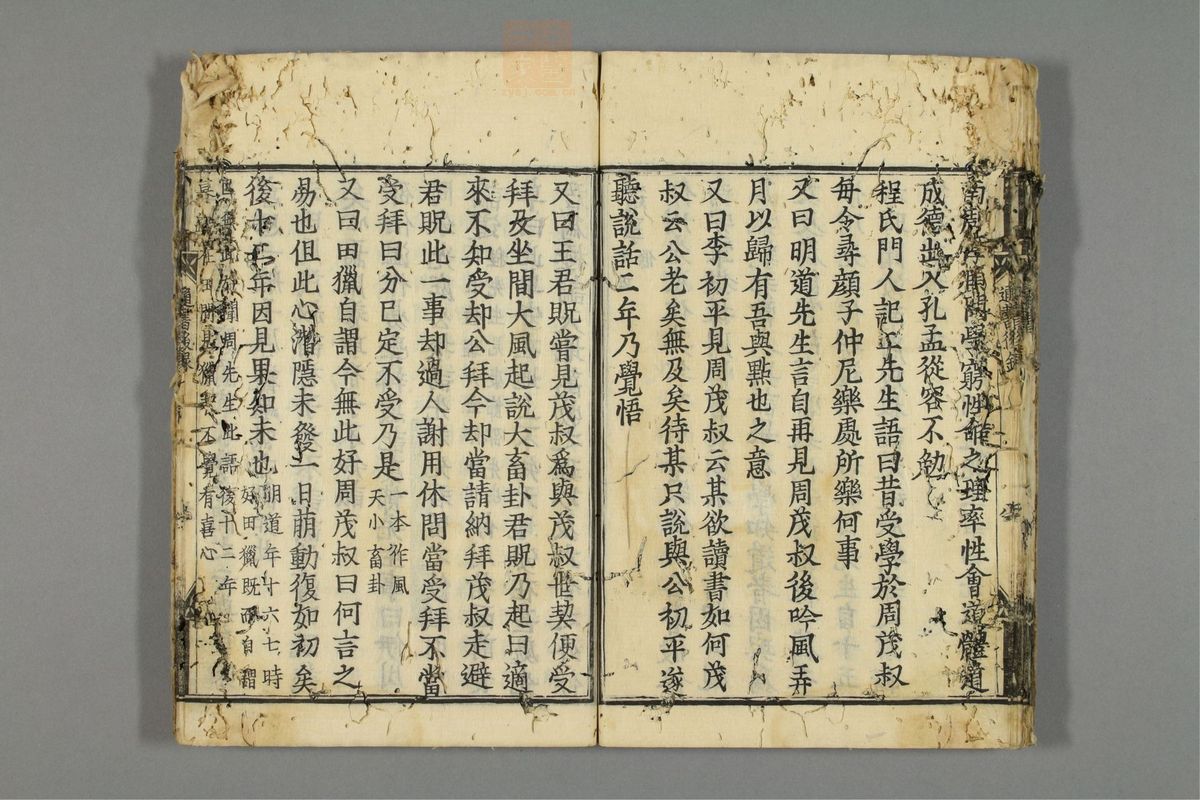 南安得周茂叔聞其論學窮性命之理率性會道體道
成德出入孔孟從容不勉
程氏門人記二先生語曰昔受學於周茂叔
每令尋顔子仲尼樂處所樂何事
又曰明道先生言自再見周茂叔後吟風弄
月以歸有吾與點也之意
又曰李初平見周茂叔云某欲讀書如何茂
叔云公老矣無及矣待某只說與公初平遂
聽說話二年乃覺悟
又曰王君貺嘗見茂叔爲與茂叔世契便受
拜及坐間大風起說大畜卦君貺乃起曰適
來不知受却公拜今却當請納拜茂叔走避
君貺此一事却過人謝用休問當受拜不當
受拜曰分已定不受乃是
一本作風
天小畜卦
又曰田獵自謂今無此好周茂叔曰何言之
易也但此心潛隱未發一日萌動復如初矣
後十二年因見果知未也
明道年十六七時
好田獵既而自謂
已無此好聞周先生此語後十二年
暮歸在田間見獵者不覺有喜心